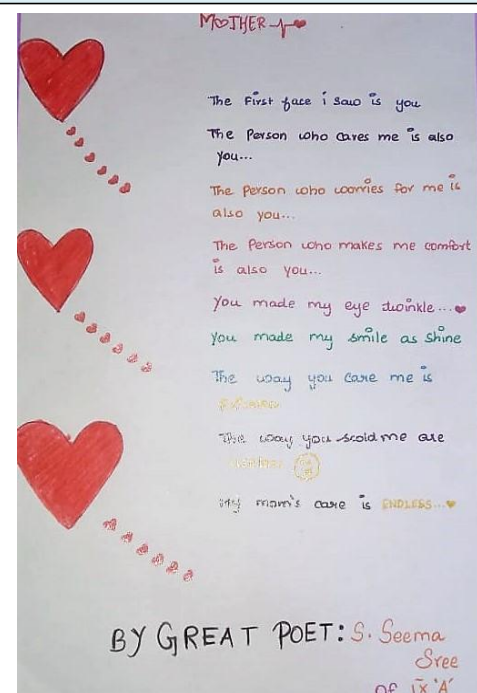 MOTHER
The First face i saw is you
The Person who cares me is also
you...
The Person who worries for me is
also you...
The Person who makes me comfort
is also you...
You made my eye twinkle...
You made my smile as shine
The way you care me is
The way you scold me are
My mom's care is ENDLESS...
BY GREAT POET: S. Seema
Sree
OF IX 'A'